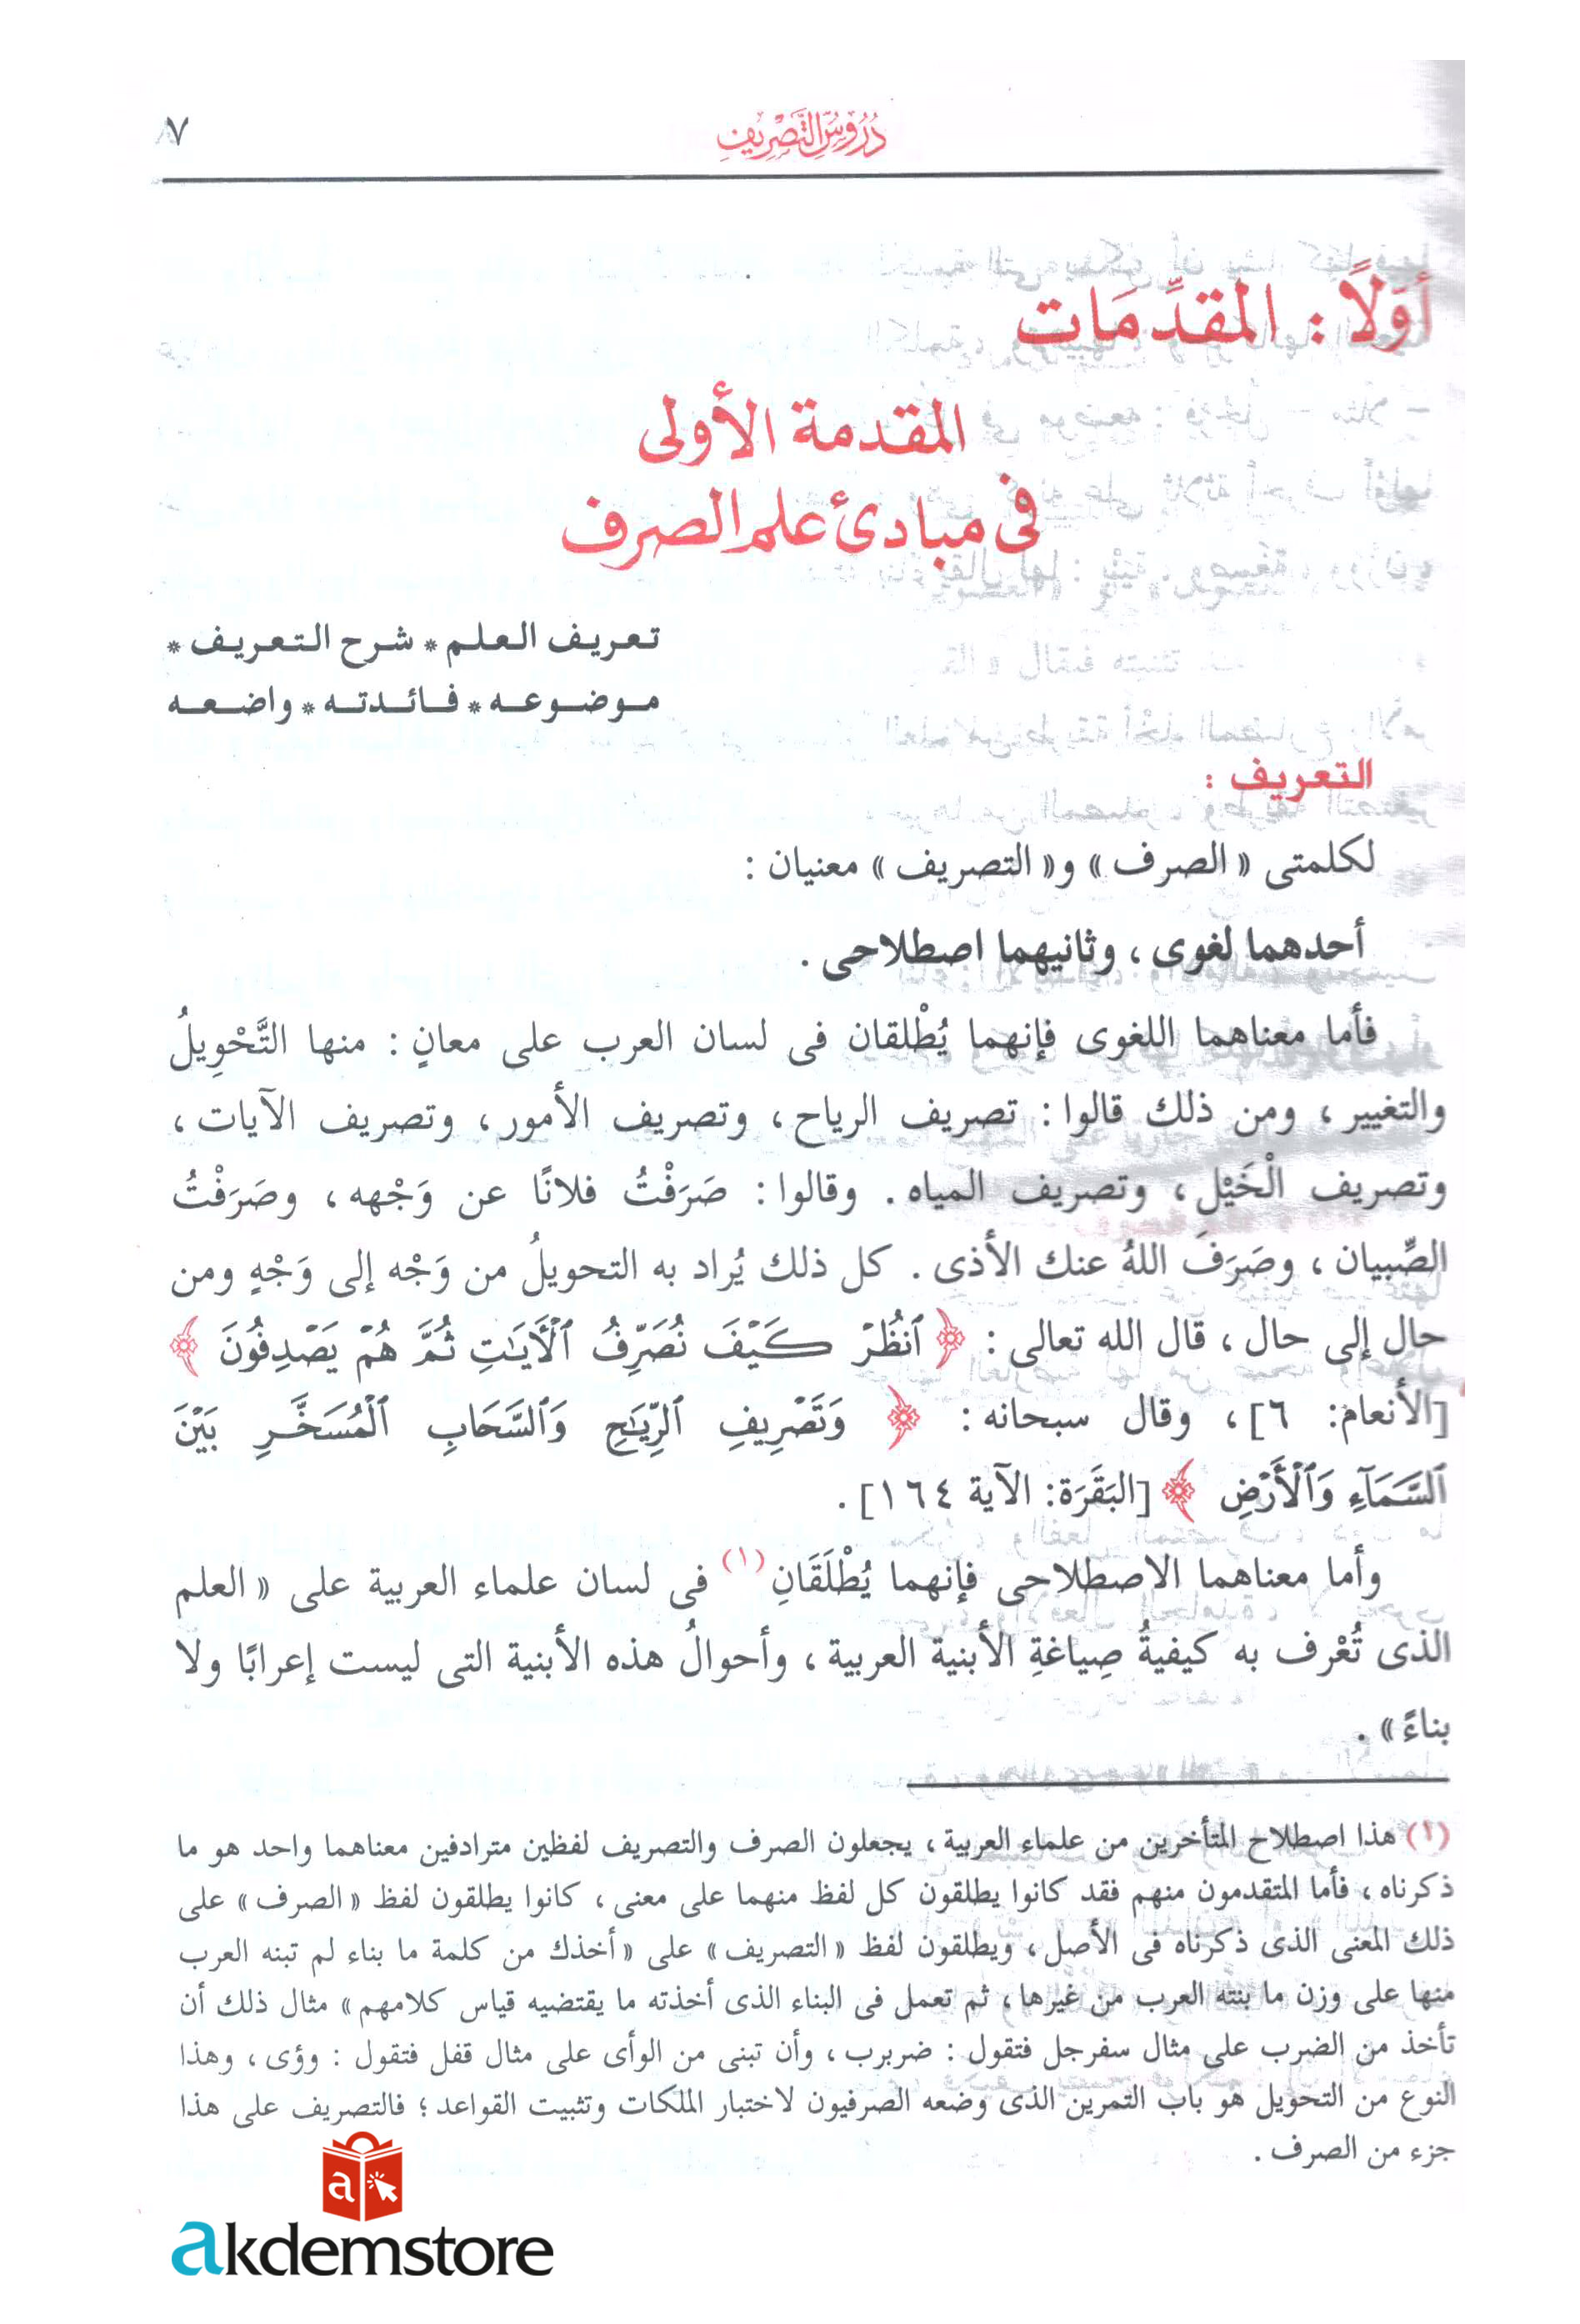 دُرُوسُ التَّصْرِيفِ
٧
أوّلاً : المقدِّمَات
المقدمة الأولى
فى مبادئ علم الصرف
تعريف العلم * شرح التعريف *
موضوعه * فائدته * واضعه
التعريف :
لكلمتى « الصرف » و« التصريف » معنيان :
أحدهما لغوى ، وثانيهما اصطلاحى .
فأما معناهما اللغوى فإنهما يُطْلقان فى لسان العرب على معانٍ : منها التَّحْوِيلُ
والتغيير ، ومن ذلك قالوا : تصريف الرياح ، وتصريف الأمور ، وتصريف الآيات ،
وتصريف الْخَيْل ، وتصريف المياه . وقالوا : صَرَفْتُ فلانًا عن وَجْهه ، وصَرَفْتُ
الصِّبيان ، وصَرَفَ اللهُ عنك الأذى . كل ذلك يُراد به التحويلُ من وَجْه إلى وَجْهٍ ومن
حال إلى حال ، قال الله تعالى : ﴿ ٱنظُرْ كَيْفَ نُصَرِّفُ ٱلْأَيَٰتِ ثُمَّ هُمْ يَصْدِفُونَ ﴾
[الأنعام: ٦] ، وقال سبحانه : ﴿ وَتَصْرِيفِ ٱلرِّيَٰحِ وَٱلسَّحَابِ ٱلْمُسَخَّرِ بَيْنَ
ٱلسَّمَآءِ وَٱلْأَرْضِ ﴾ [البَقَرَة: الآية ١٦٤] .
وأما معناهما الاصطلاحى فإنهما يُطْلَقَانِ (١) فى لسان علماء العربية على « العلم
الذى تُعْرف به كيفيةُ صِياغةِ الأبنية العربية ، وأحوالُ هذه الأبنية التى ليست إعرابًا ولا
بناءً » .
(١) هذا اصطلاح المتأخرين من علماء العربية ، يجعلون الصرف والتصريف لفظين مترادفين معناهما واحد هو ما
ذكرناه ، فأما المتقدمون منهم فقد كانوا يطلقون كل لفظ منهما على معنى ، كانوا يطلقون لفظ « الصرف » على
ذلك المعنى الذى ذكرناه فى الأصل ، ويطلقون لفظ « التصريف » على « أخذك من كلمة ما بناء لم تبنه العرب
منها على وزن ما بنته العرب من غيرها ، ثم تعمل فى البناء الذى أخذته ما يقتضيه قياس كلامهم » مثال ذلك أن
تأخذ من الضرب على مثال سفرجل فتقول : ضربرب ، وأن تبنى من الوأى على مثال قفل فتقول : وؤى ، وهذا
النوع من التحويل هو باب التمرين الذى وضعه الصرفيون لاختبار الملكات وتثبيت القواعد ؛ فالتصريف على هذا
جزء من الصرف .
a
akdemstore